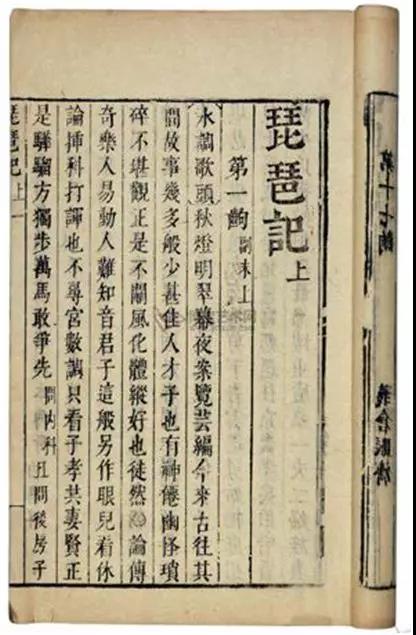 第十七齣
義倉賑濟
琵琶記 上
第一齣 副末上
水調歌頭 秋燈明翠幕夜案覽芸編今來古往其
間故事幾多般少甚佳人才子也有神僊幽怪瑣
碎不堪觀正是不關風化體縱好也徒然 論傳
奇樂人易動人難知音君子這般另作眼兒看休
論插科打諢也不尋宮數調只看子孝共妻賢正
是驊騮方獨步萬馬敢爭先 問內科 且問後房子
琵琶記 上 一